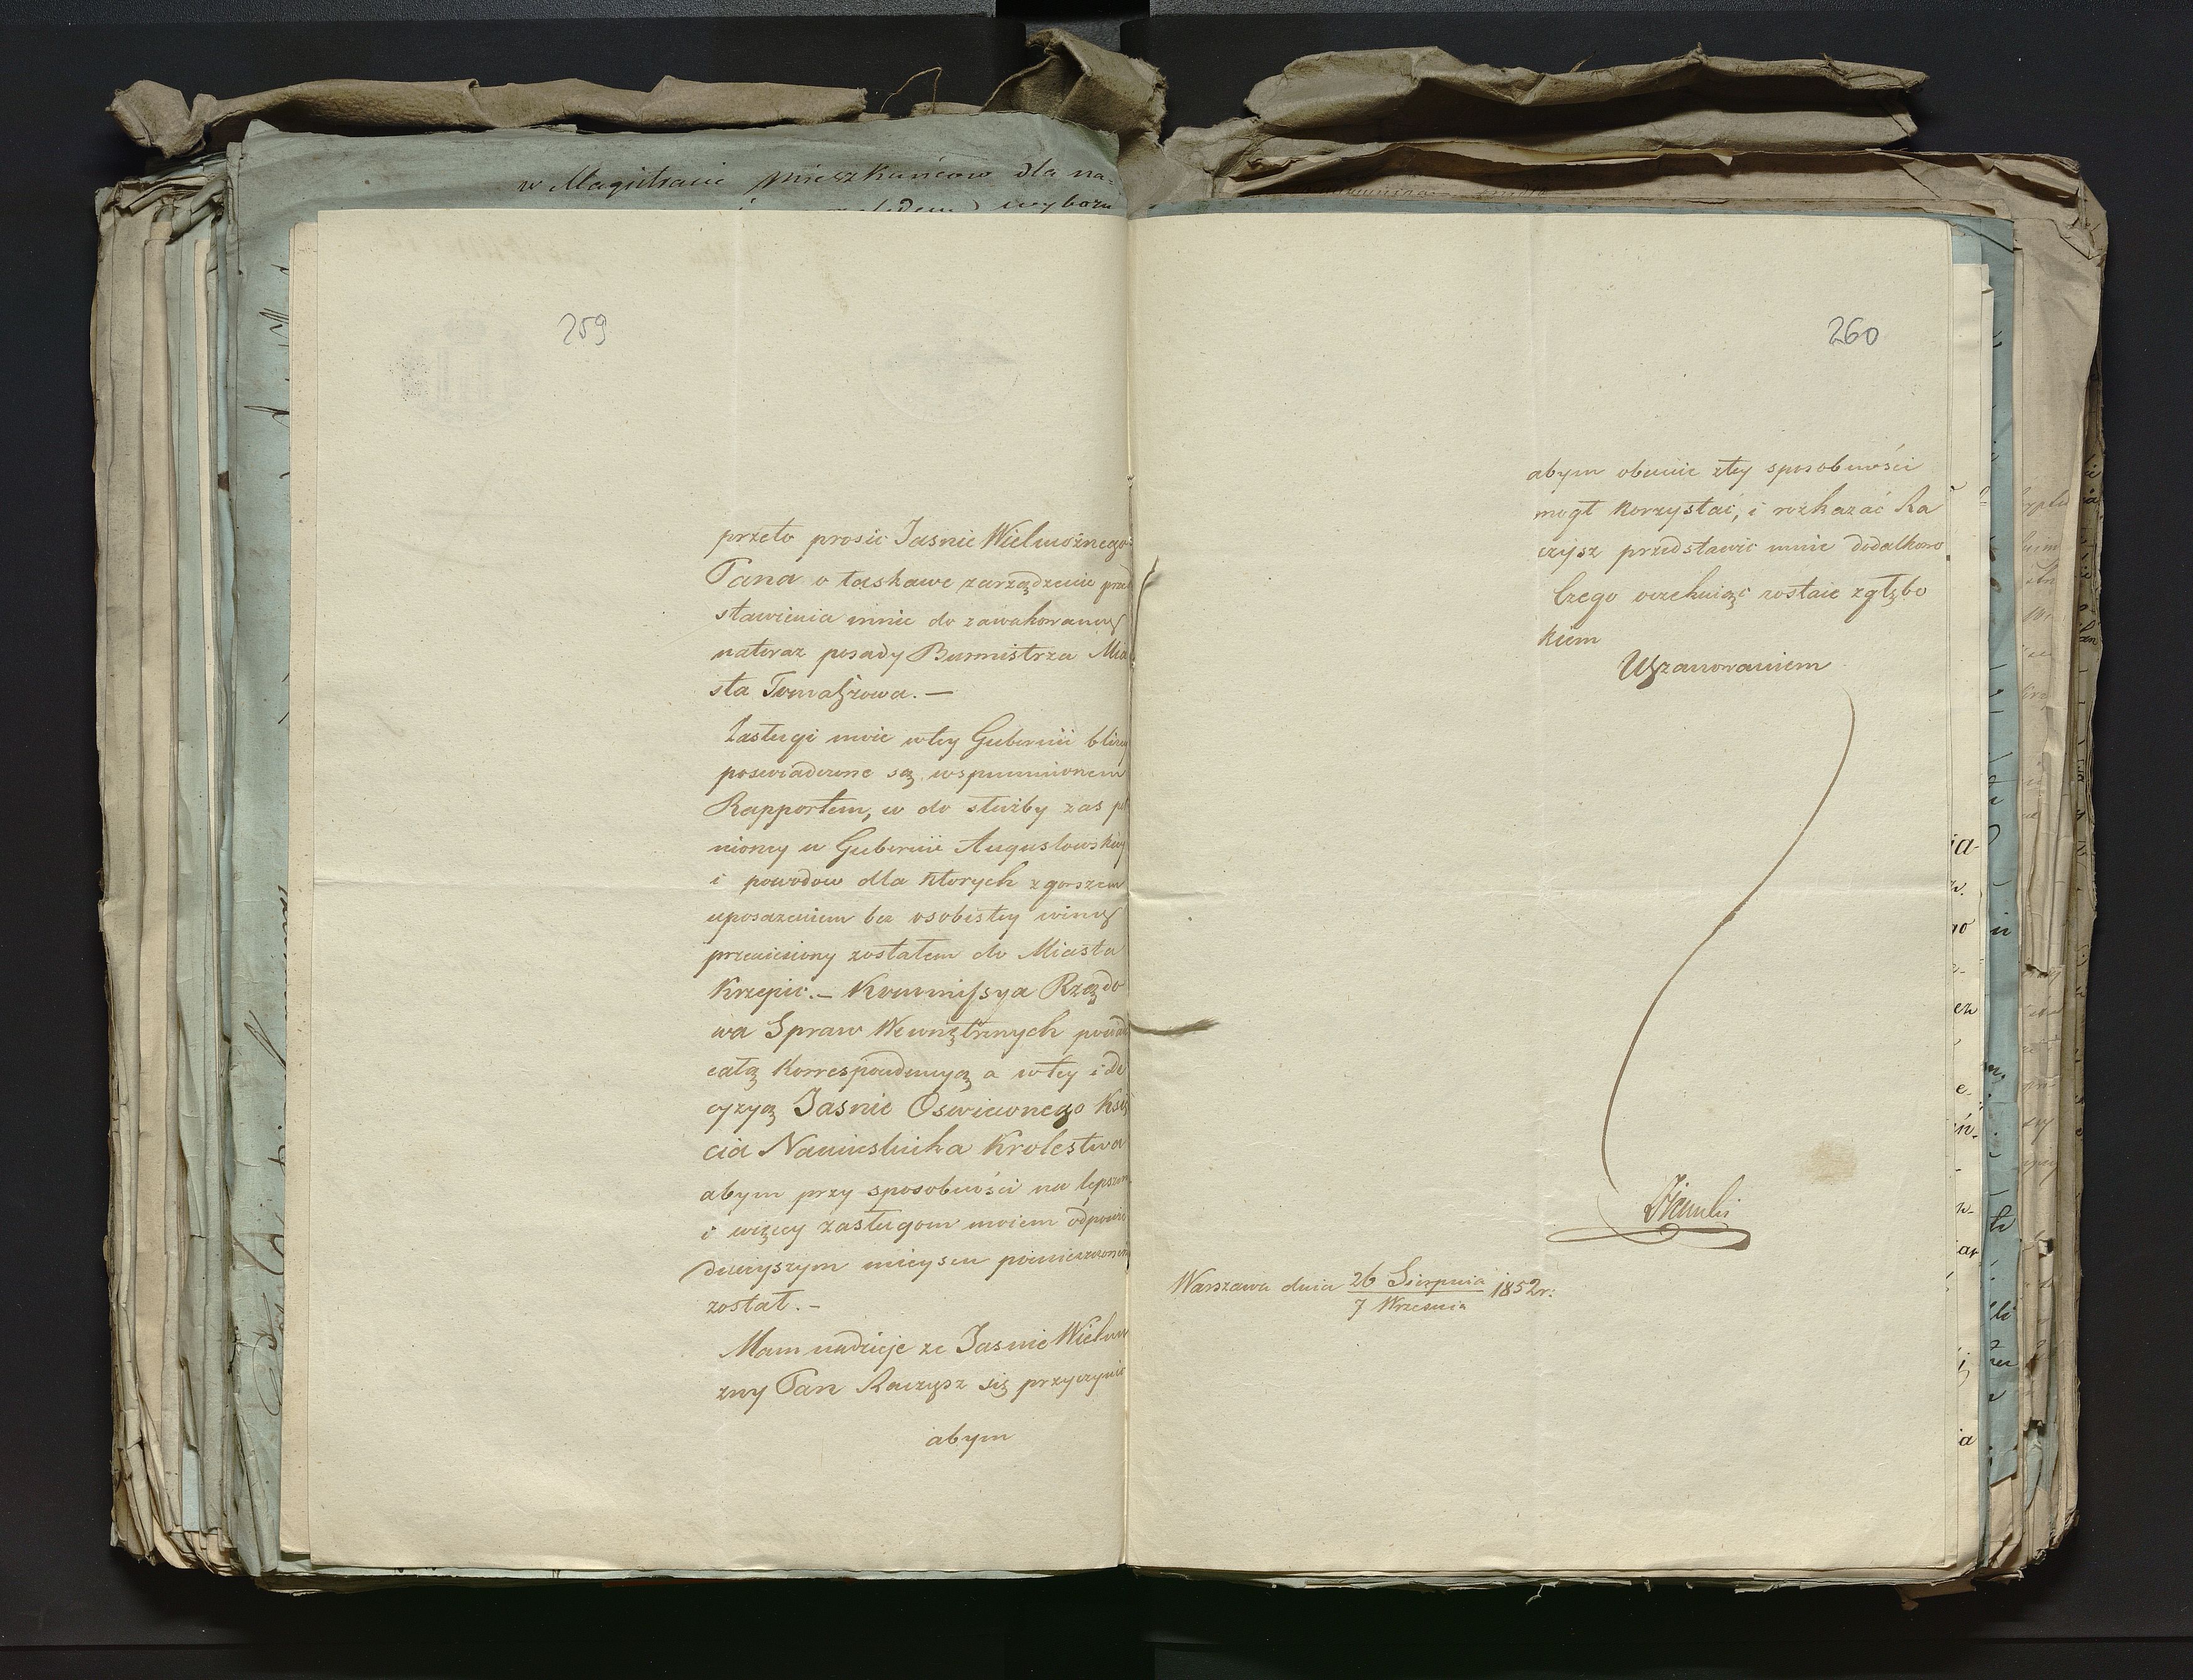 w Magistracie Mieszkańców dla na=
wyboru
259
przeto prosić Jasnie Wielmożnego
Pana o łaskawe zarządzenie przed
stawienia mnie do zawakowaney
nateraz posady Burmistrza Mia
sta Tomaszowa. —
Zasługi moie wtey Gubernii
poswiadczone są wspomnionem
Rapportem, co do służby zas
nioney w Gubernii Augustowskiey
i powodow dla ktorych zgorszem
uposazeniem bez osobistey winy
przeniesiony zostałem do Miasta
Krzepic. — Kommissya Rządo
wa Spraw Wewnętrznych
całą Korrespondencyą a wtey i de
cyzyą Jasnie Oswieconego Księ
cia Namiestnika Krolestwa
abym przy sposobności na lepszem
i więcey zasługom moiem odpowie
dnieyszym mieyscu pomieszczonem
został. —
Mam nadzieje ze Jasnie Wielmo
zny Pan Raczysz się przyczynić
abym
260
abym obecnie ztey sposobności
mogł korzystać, i rozkazać Ra
czysz przedstawić mnie dodatkowo
czego oczekuiąc zostaie zgłębo
kiem
Uszanowaniem
Warszawa dnia 26 Sierpnia / 7 Wrzesnia 1852r: